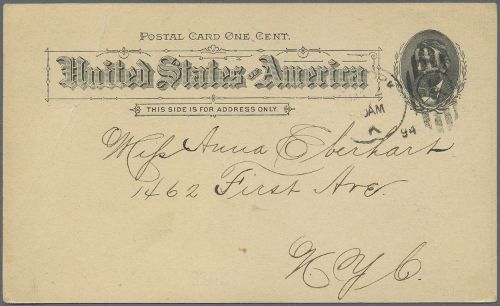 POSTAL CARD ONE CENT.
United States of America
THIS SIDE IS FOR ADDRESS ONLY.
AM
94
Miss Anna Eberhart
1462 First Ave.
N. Y. C.